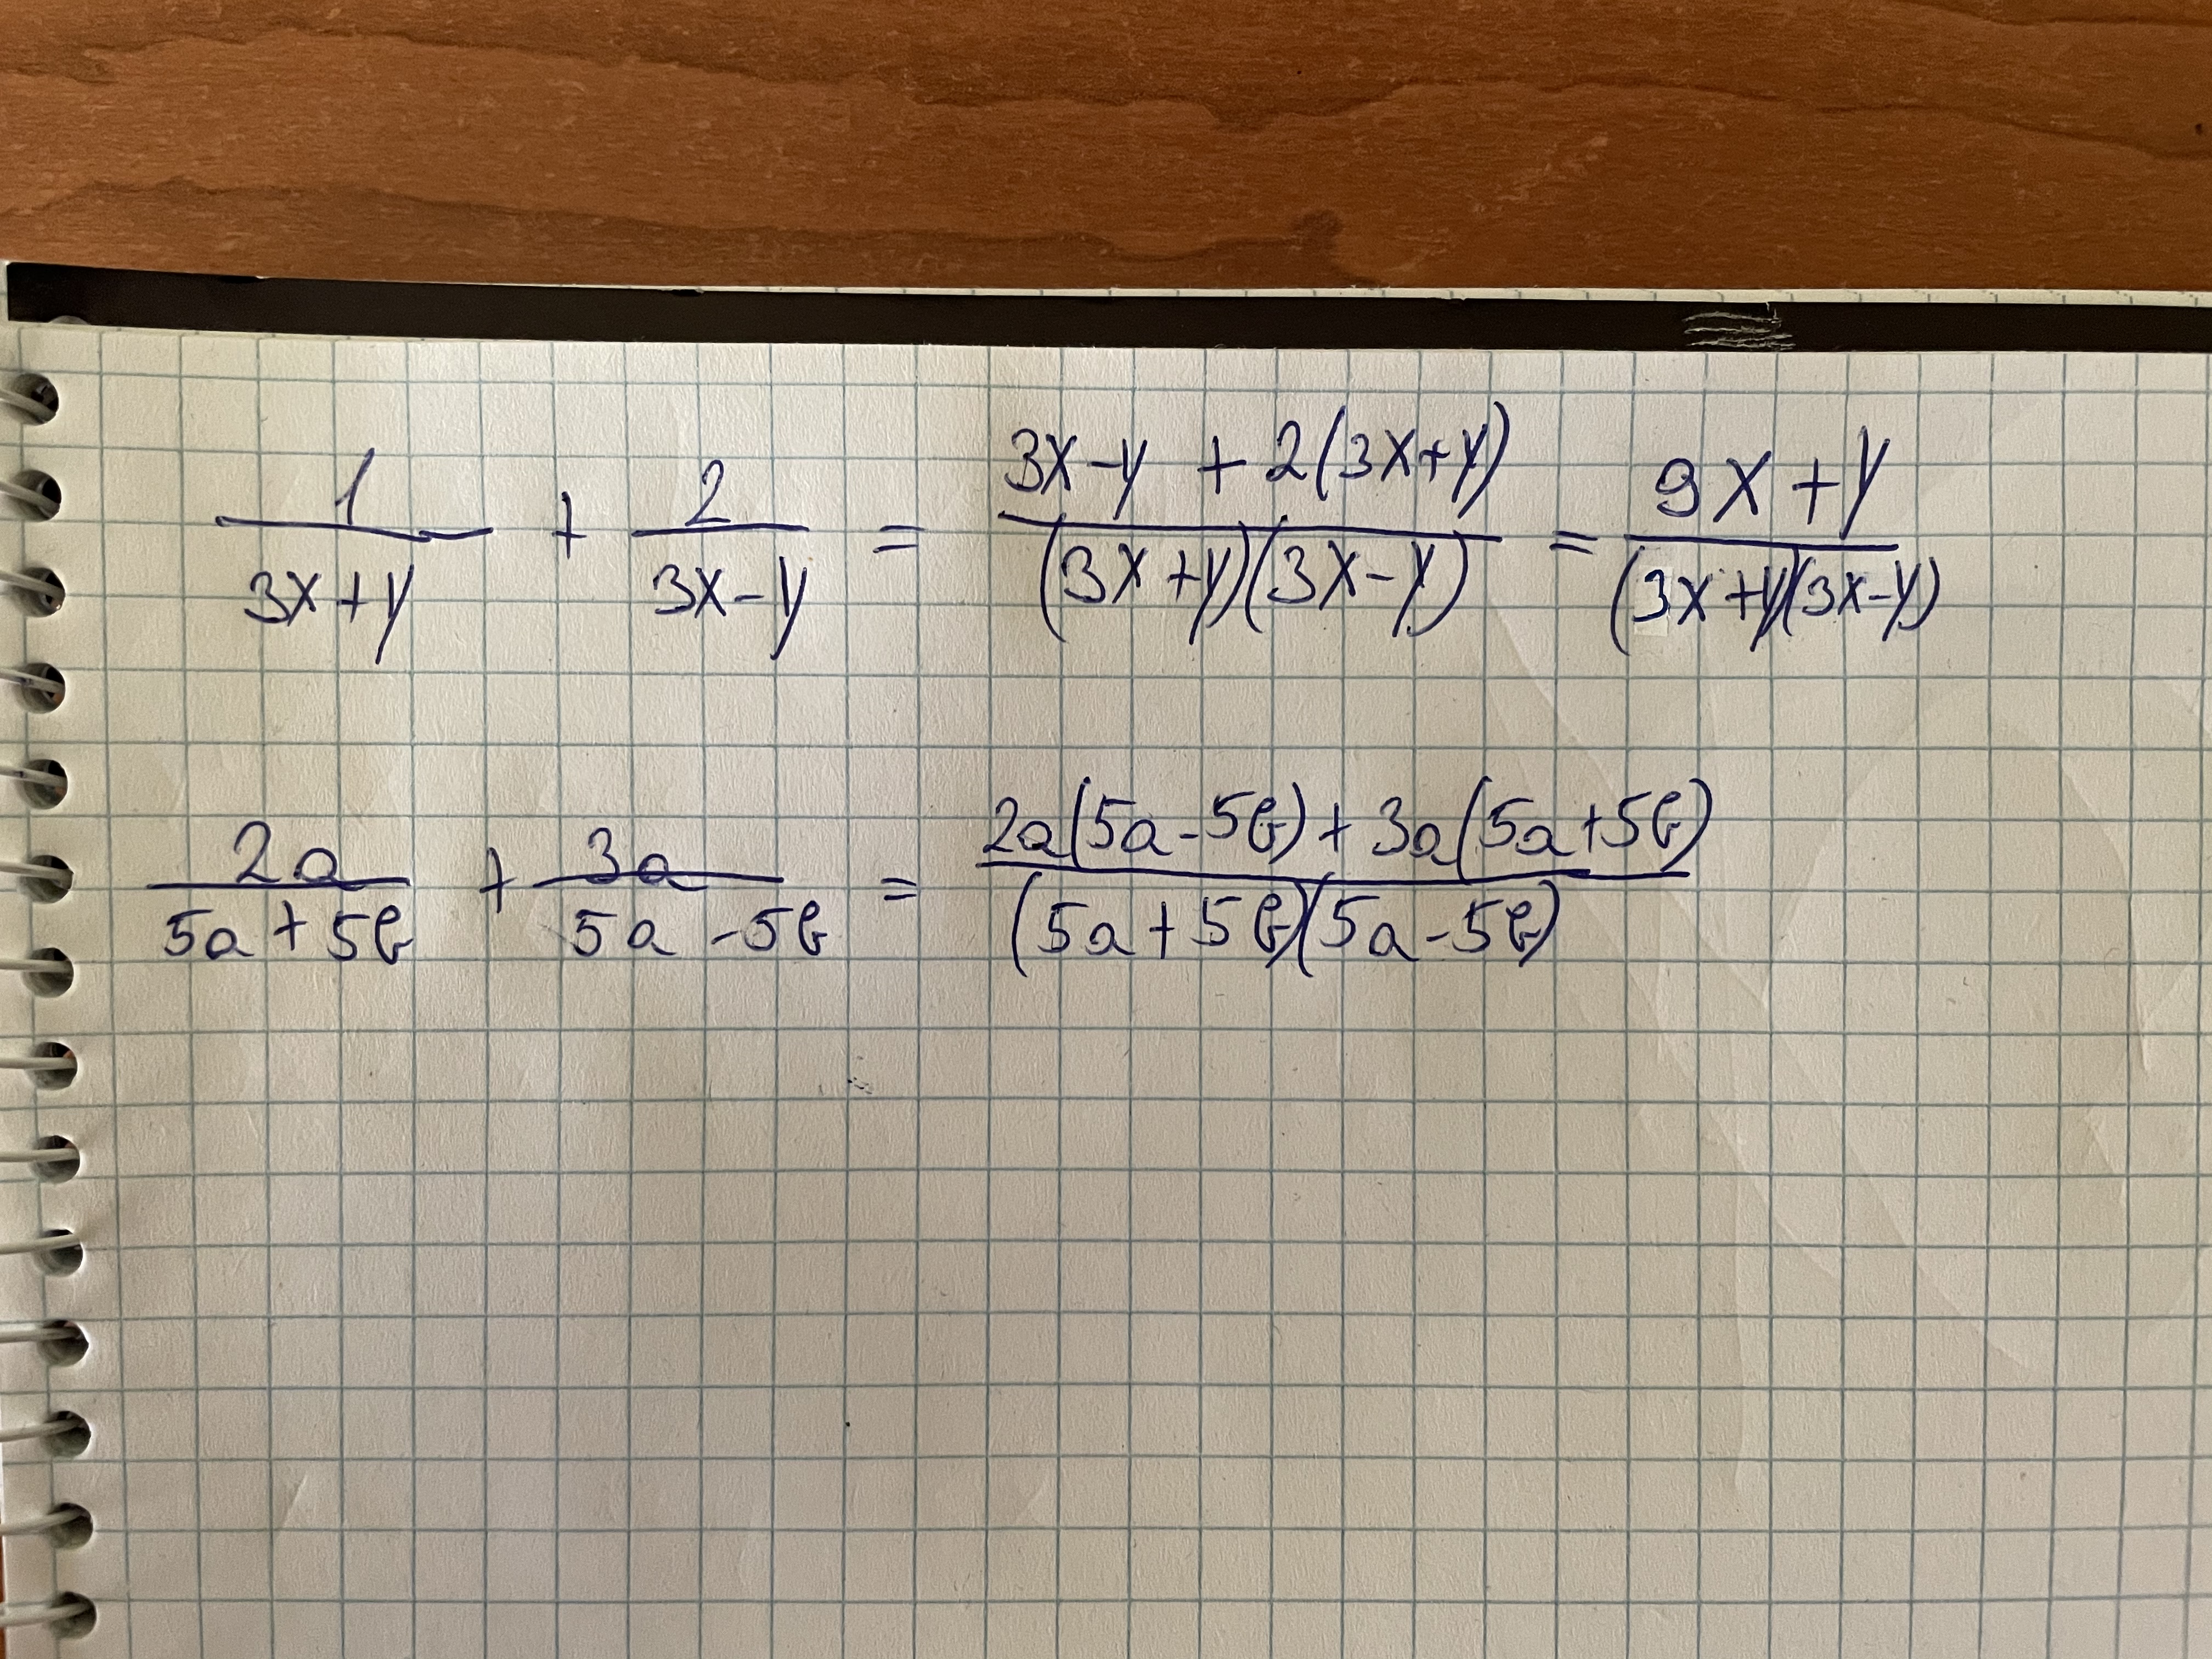 1/(3x+y) + 2/(3x-y) = (3x-y + 2(3x+y))/((3x+y)(3x-y)) = (9x+y)/((3x+y)(3x-y))
2a/(5a+5b) + 3a/(5a-5b) = (2a(5a-5b)+3a(5a+5b))/((5a+5b)(5a-5b))